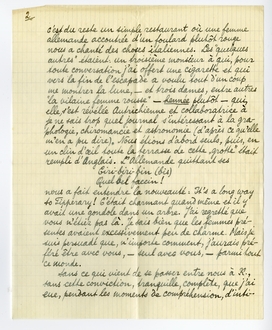 2
c'est du reste un simple restaurant où une femme
allemande accoutrée d'un foulard plutôt rouge
nous a chanté des choses italiennes. De quelques
autres étaient: un troisième monsieur à qui, pour
toute conversation, j'ai offert une cigarette et qui
vers la fin de l'escapade a voulu tout d'un coup
me montrer la lune, — et trois dames, entre autres
la vilaine femme rousse — plutôt — qui,
elle, s'est révélée Autrichienne et collaboratrice à
je ne sais trop quel journal s'intéressant à la gra-
phologie, chiromancie et astronomie (d'après ce qu'elle
m'en a pu dire). Nous étions d'abord seuls, puis, en
un clin d'œil toute la terrasse de cette "grotte" était
remplie d'Anglais. L'Allemande quittant ses
Ciri-biri-bin (bis)
Quel bel faccin!
nous a fait entendre la nouveauté: It's a long way
to Tipperary! C'était charmant quand même et il y
avait une gondole dans un arbre. J'ai regretté que
vous n'étiez pas là. Je sais bien que les femmes pré-
sentes avaient excessivement peu de charme. Mais je
suis persuadé que, n'importe comment, j'aurais pré-
féré être avec vous, — seul avec vous, — parmi tout
ce monde.
Sans ce qui vient de se passer entre nous à R.,
sans cette conviction, tranquille, complète, que j'ai
eue, pendant les moments de compréhension, d'inti-